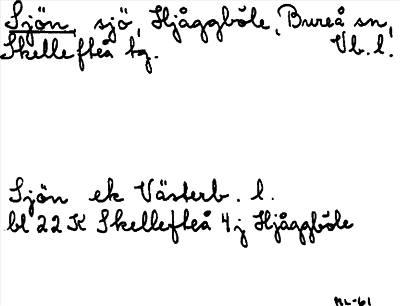 Sjön, sjö, Hjåggböle, Bureå sn,
Skellefteå tg. Vb. l.
Sjön ek Västerb. l.
bl 22 K Skellefteå 4 j Hjåggböle
ML-61